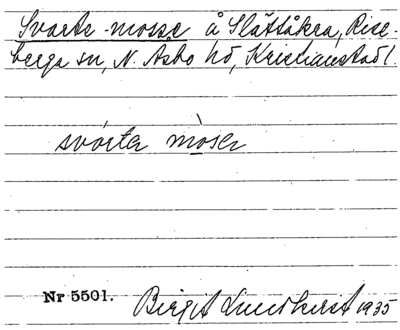 Svarte-mosse å Slättåkra, Rise-
berga sn, N. Åsbo hd, Kristianstad l.
svártar mòser
Nr 5501. Birgit Lundkvist 1935